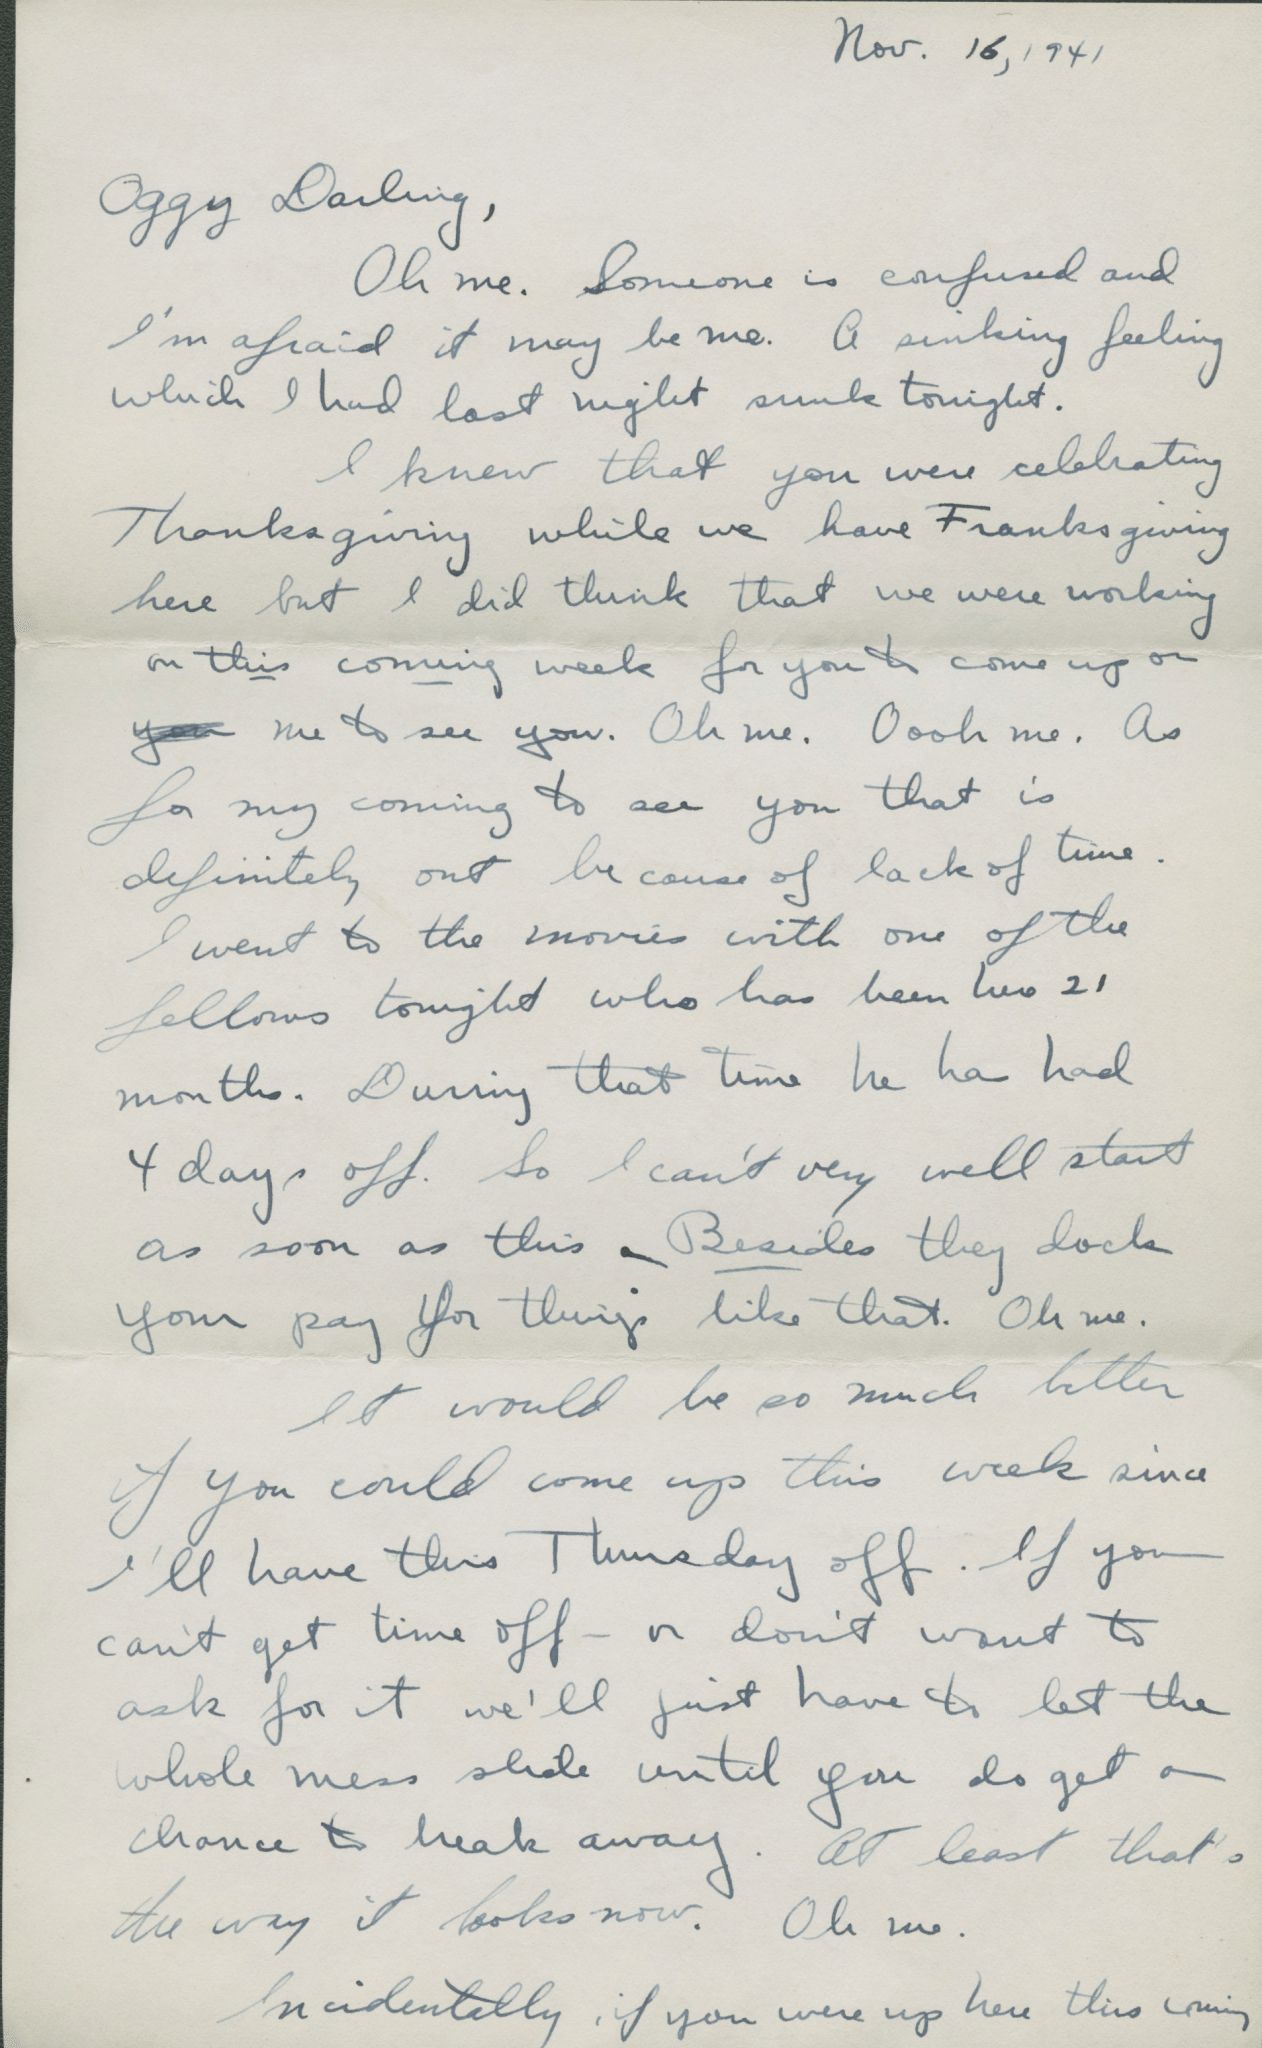 Nov. 16, 1941
Oggy Darling,
Oh me. Someone is confused and
I'm afraid it may be me. A sinking feeling
which I had last night sunk tonight.
I knew that you were celebrating
Thanksgiving while we have Franksgiving
here but I did think that we were working
on this coming week for you to come up or
you me to see you. Oh me. Oooh me. As
for my coming to see you that is
definitely out because of lack of time.
I went to the movies with one of the
fellows tonight who has been here 21
months. During that time he has had
4 days off. So I can't very well start
as soon as this. Besides they dock
your pay for things like that. Oh me.
It would be so much better
if you could come up this week since
I'll have this Thursday off. If you
can't get time off - or don't want to
ask for it we'll just have to let the
whole mess slide until you do get a
chance to break away. At least that's
the way it looks now. Oh me.
Incidentally, if you were up here this coming